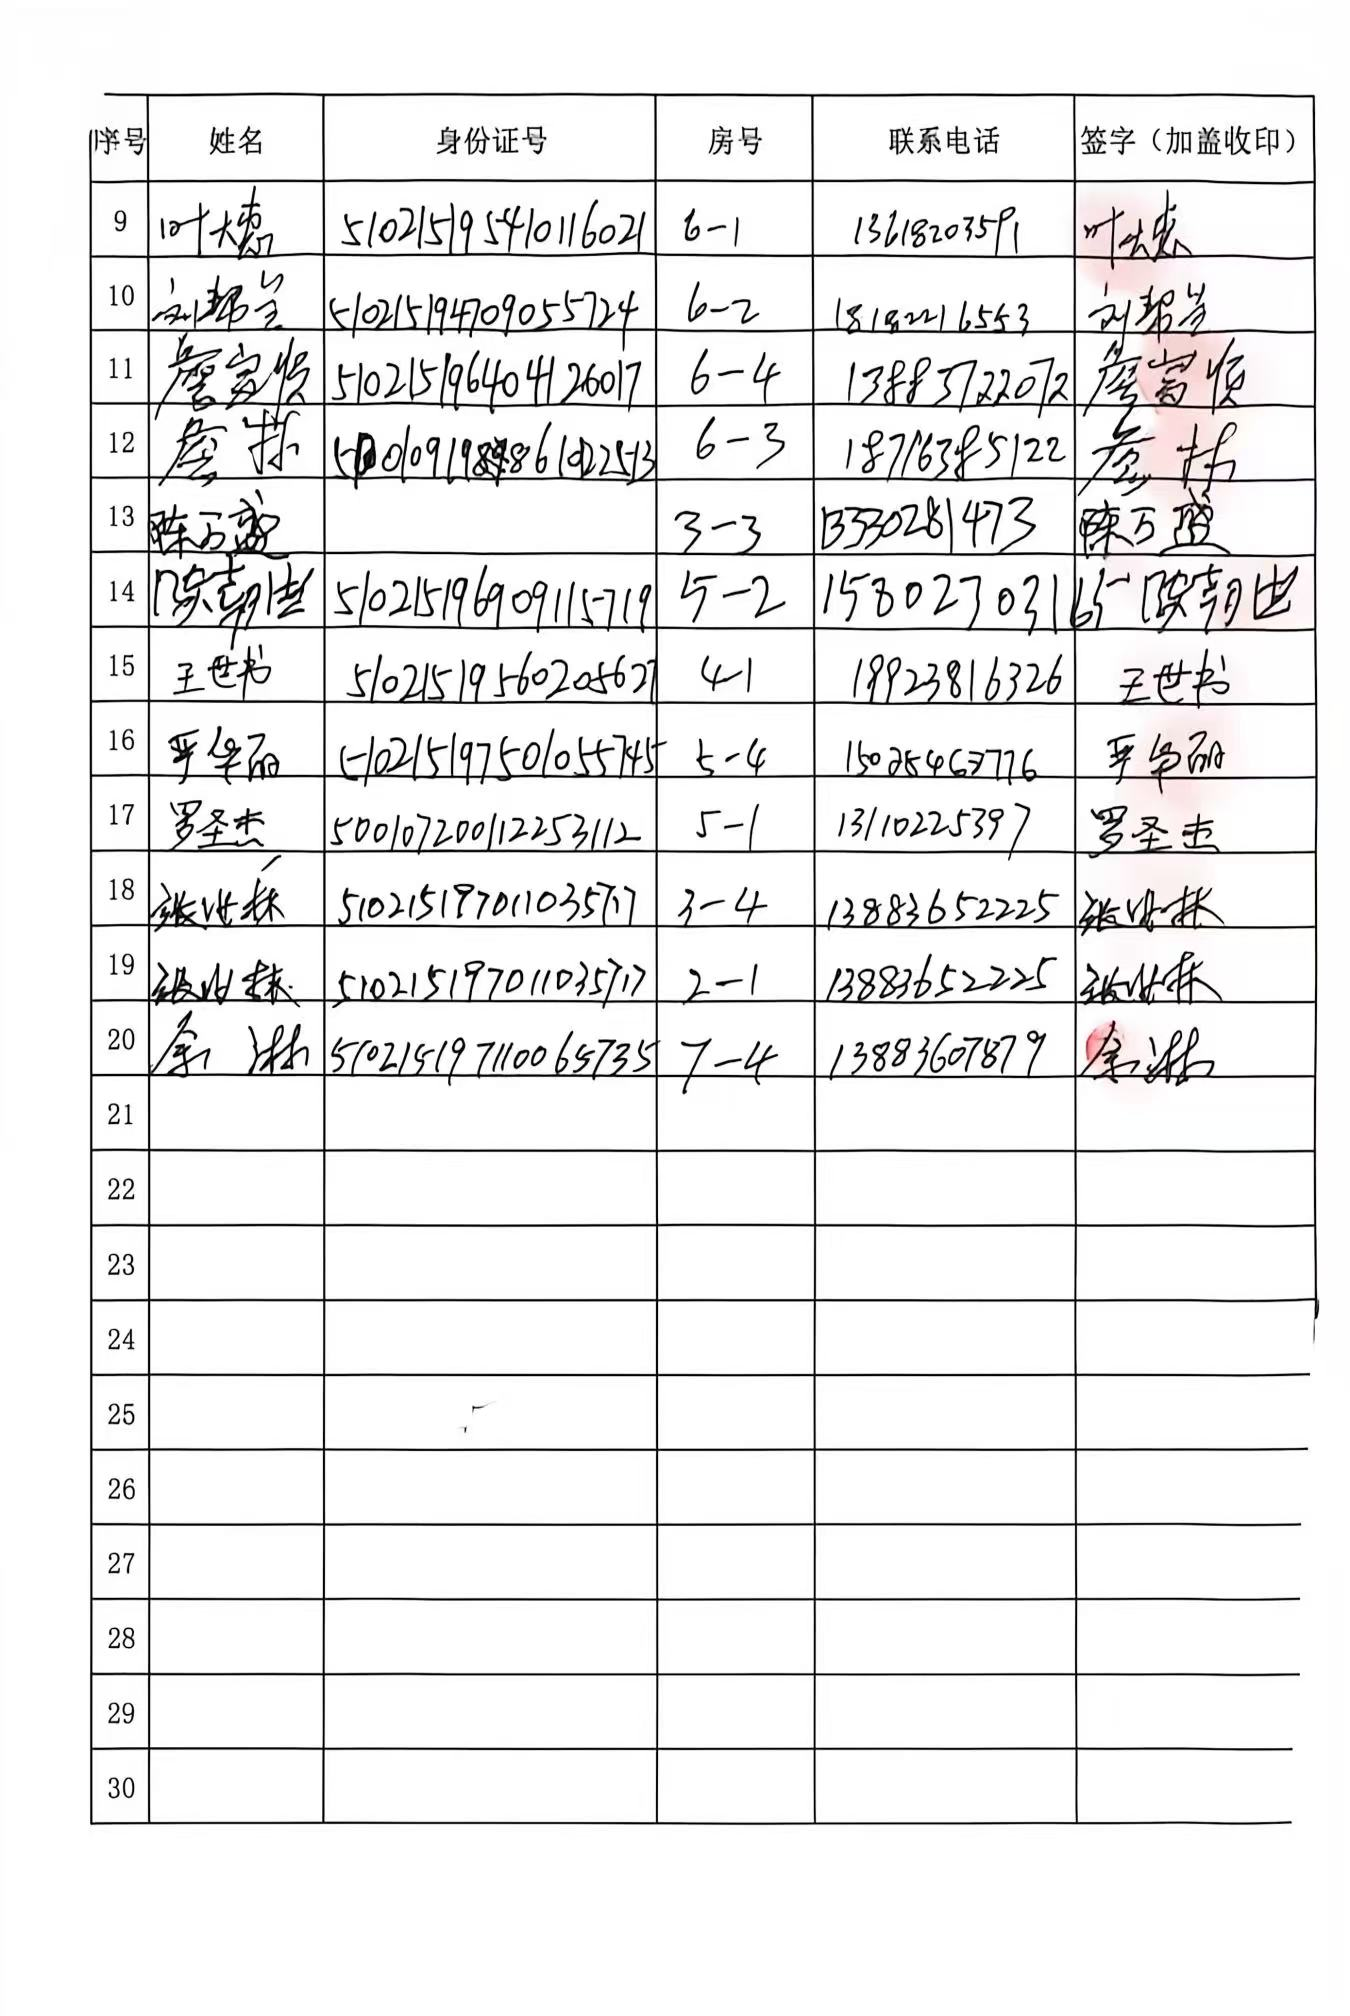 序号 姓名 身份证号 房号 联系电话 签字（加盖收印）
9 叶大惠 510215195410116021 6-1 13618203591 叶大惠
10 刘帮兰 510215194709055724 6-2 18182216553 刘帮兰
11 詹富顺 510215196404126017 6-4 13883722072 詹富顺
12 詹栋 6-3 18716385122 詹栋
13 陈万盛 3-3 13330281473 陈万盛
14 陈朝世 510215196909115719 5-2 15802303165 陈朝世
15 王世书 51021519560205627 4-1 18923816326 王世书
16 严华丽 510215197501055745 5-4 15025463776 严华丽
17 罗圣杰 500107200112253112 5-1 13110225397 罗圣杰
18 张世林 510215197011035717 3-4 13883652225 张世林
19 张世林 510215197011035717 2-1 13883652225 张世林
20 余淋 510215197110065735 7-4 13883607879 余淋
21
22
23
24
25
26
27
28
29
30